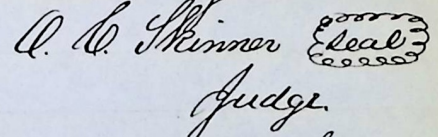 O. C. Skinner Seal
Judge.